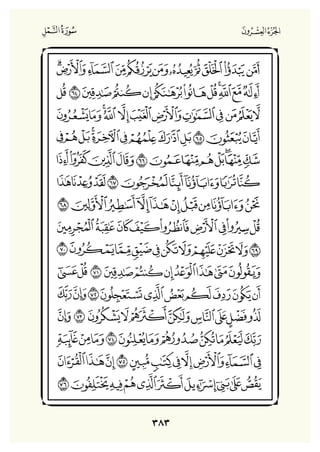 الجزء العشرون سورة النمل
أمن يبدؤا الخلق ثم يعيده ومن يرزقكم من السماء والأرض
أءله مع الله قل هاتوا برهانكم إن كنتم صادقين ٦٤ قل
لا يعلم من في السماوات والأرض الغيب إلا الله وما يشعرون
أيان يبعثون ٦٥ بل ادارك علمهم في الآخرة بل هم في
شك منها بل هم منها عمون ٦٦ وقال الذين كفروا أءذا
كنا ترابا وءاباؤنا أئنا لمخرجون ٦٧ لقد وعدنا هذا
نحن وءاباؤنا من قبل إن هذا إلا أساطير الأولين ٦٨
قل سيروا في الأرض فانظروا كيف كان عاقبة المجرمين
٦٩ ولا تحزن عليهم ولا تكن في ضيق مما يمكرون ٧٠
ويقولون متى هذا الوعد إن كنتم صادقين ٧١ قل عسى
أن يكون ردف لكم بعض الذي تستعجلون ٧٢ وإن ربك
لذو فضل على الناس ولكن أكثرهم لا يشكرون ٧٣ وإن
ربك ليعلم ما تكن صدورهم وما يعلنون ٧٤ وما من غائبة
في السماء والأرض إلا في كتاب مبين ٧٥ إن هذا القرءان
يقص على بني إسرائيل أكثر الذي هم فيه يختلفون ٧٦
٣٨٣